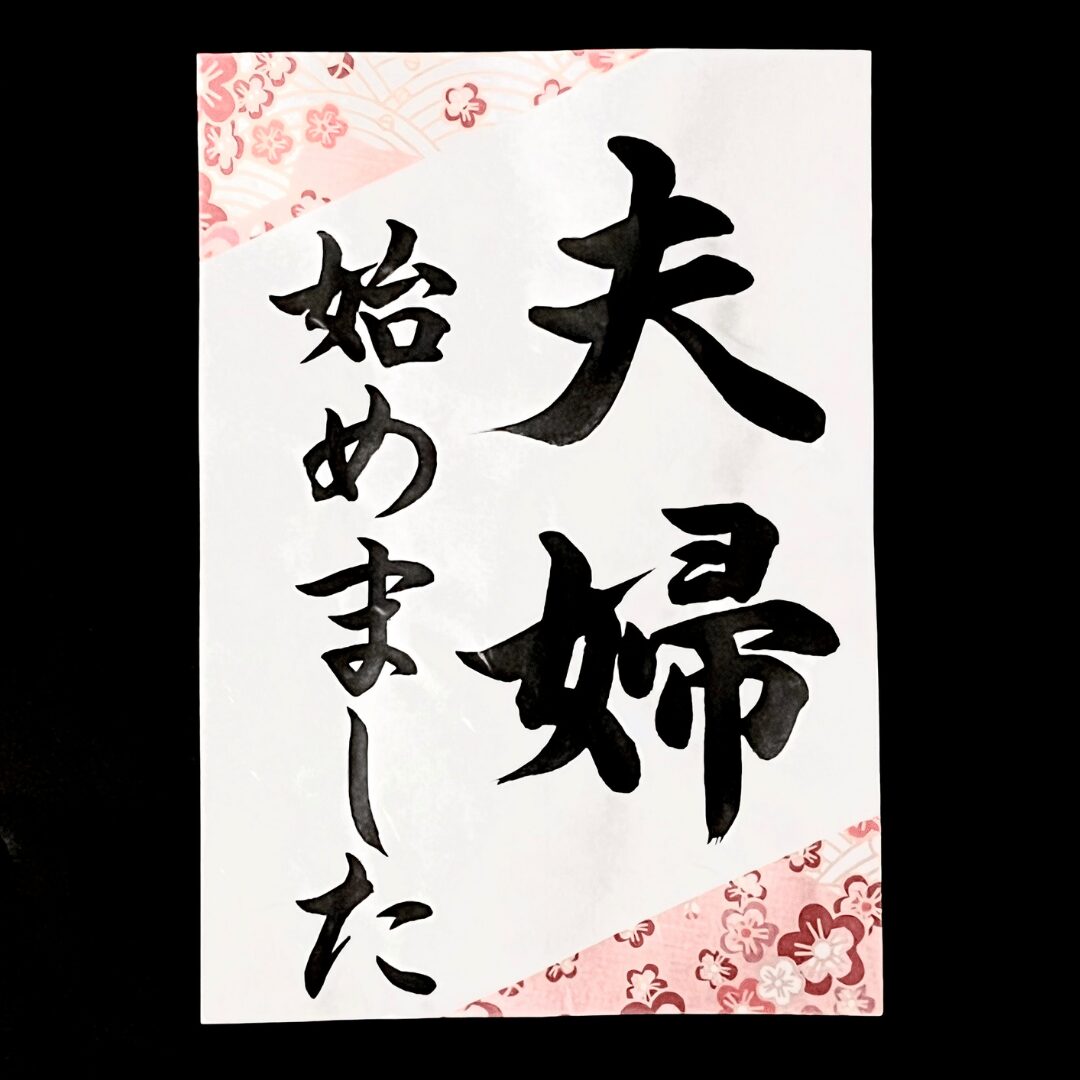 夫婦
始めました